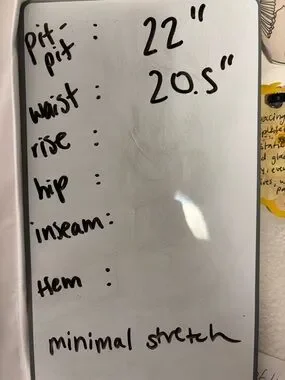 pit-
pit : 22"
waist : 20.5"
rise :
hip :
inseam:
Hem :
minimal stretch